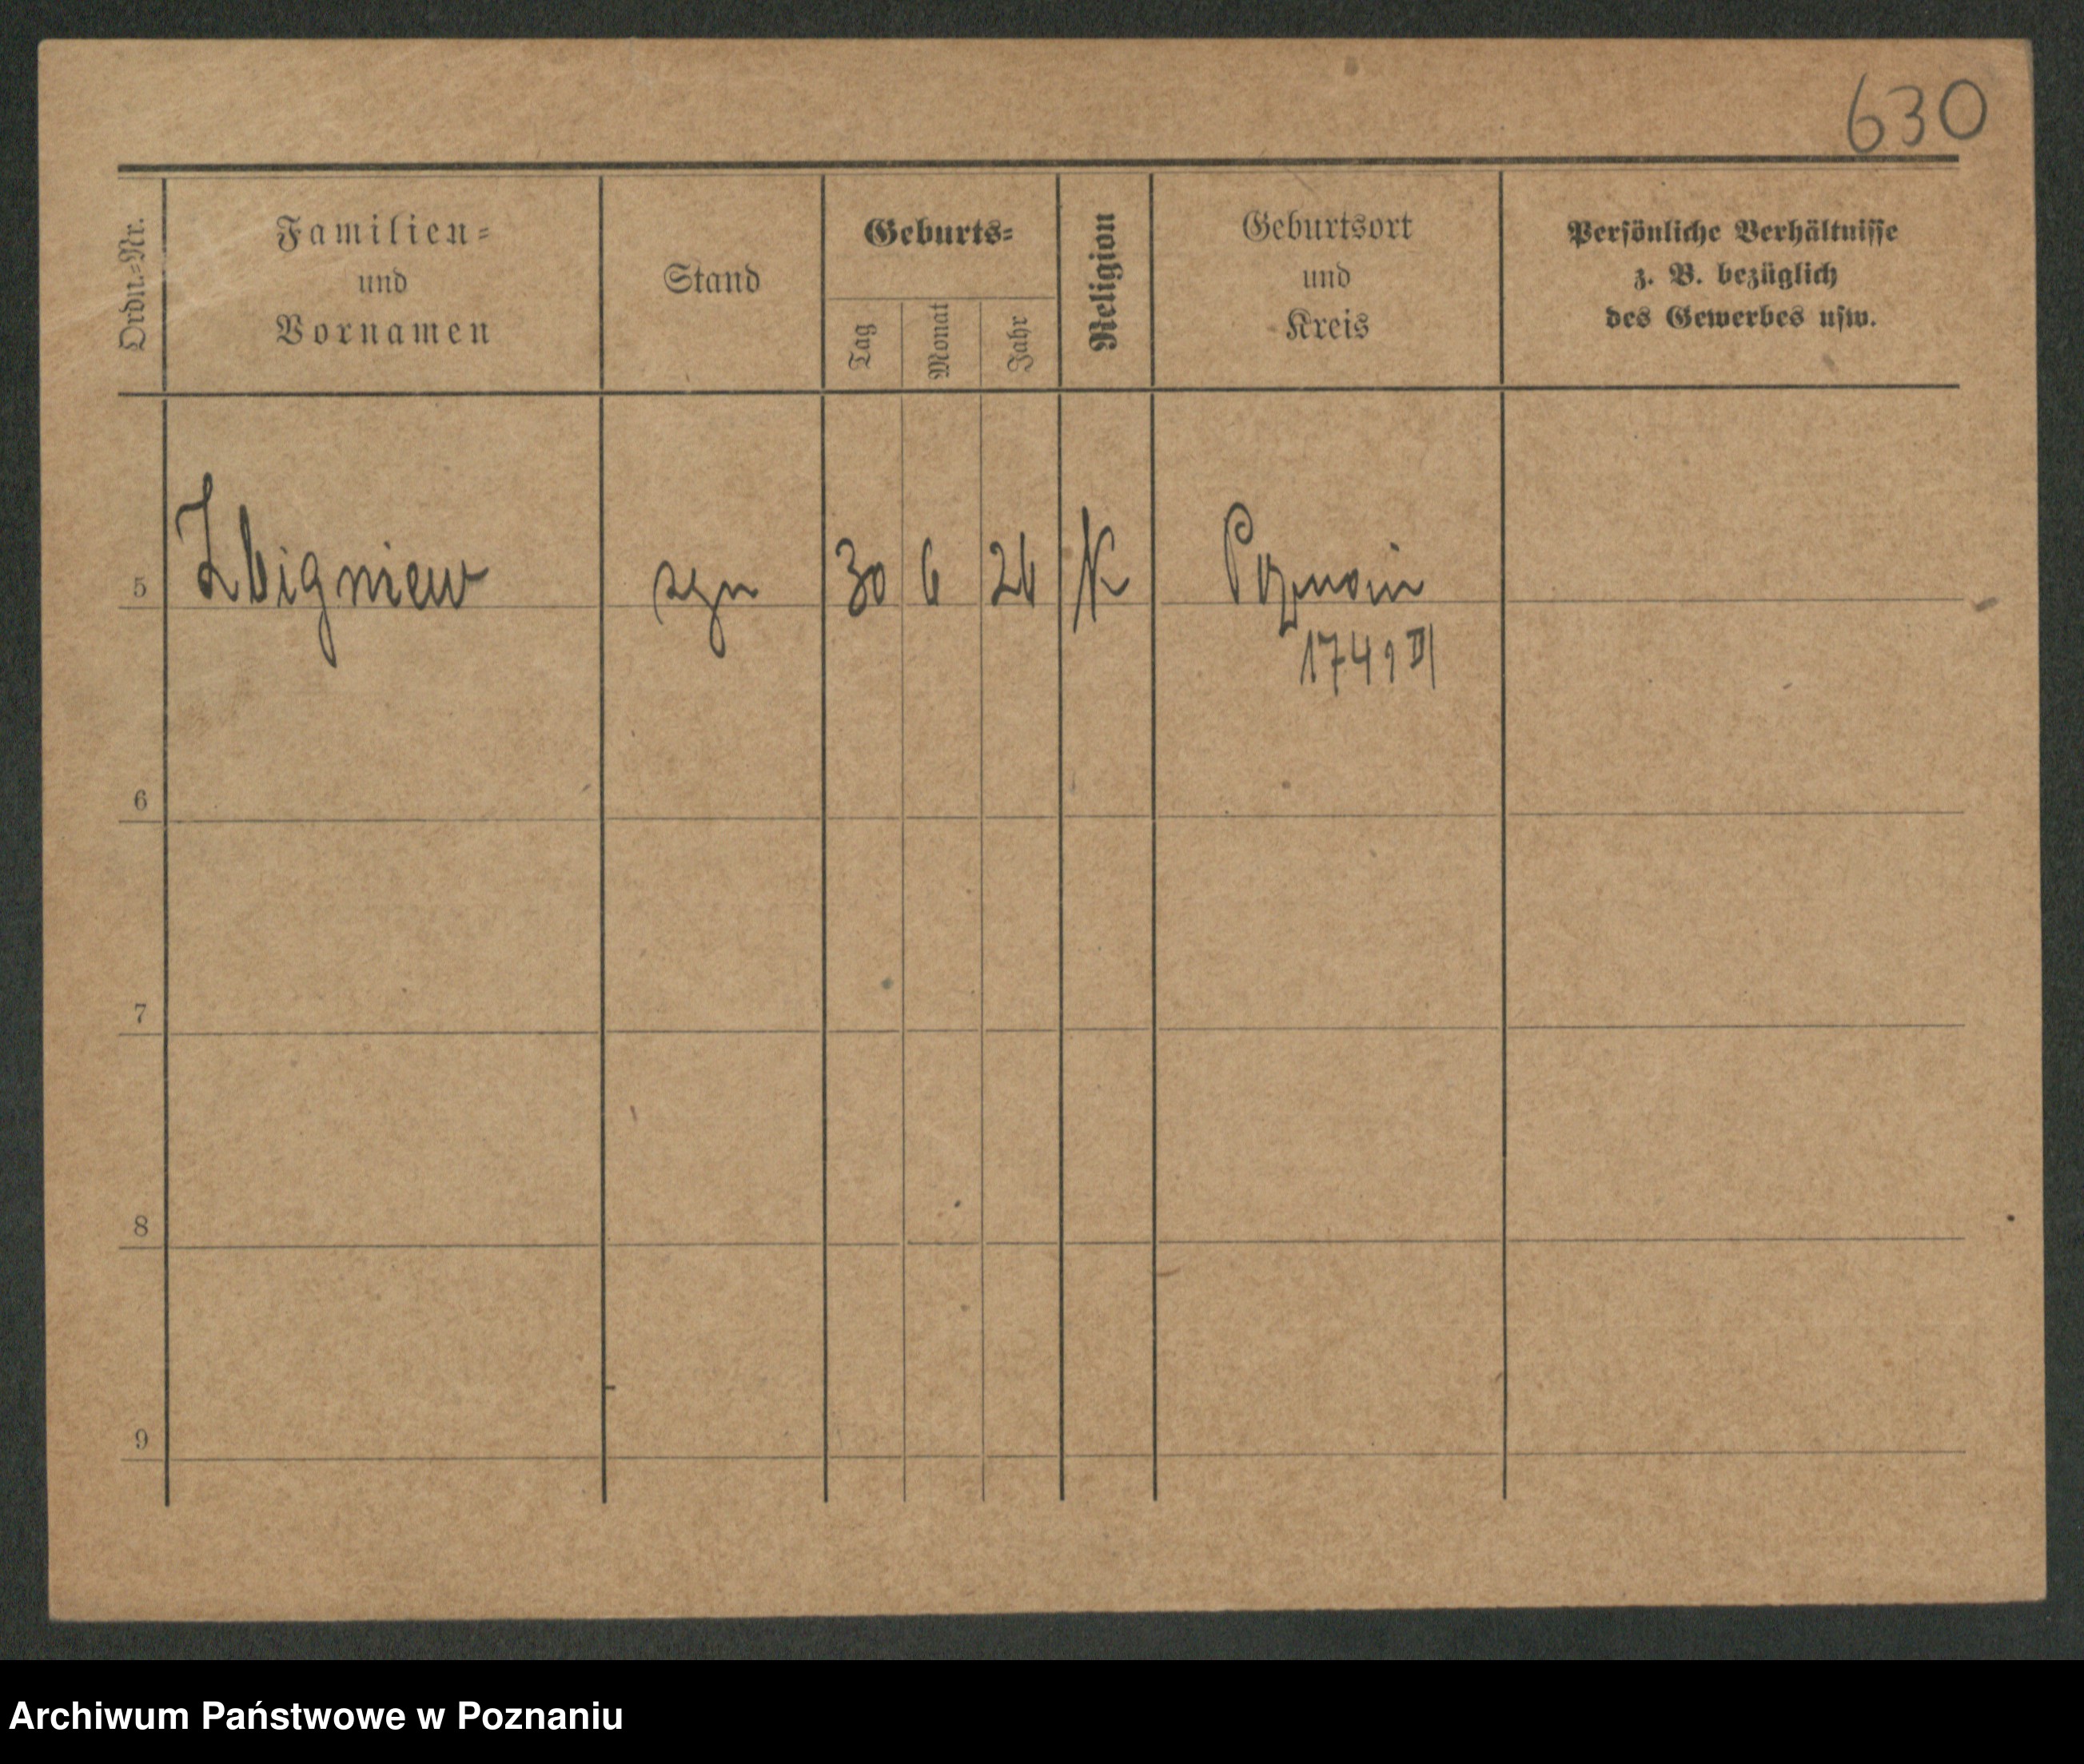 630
Ordn.-Nr.
Familien-
und
Vornamen
Stand
Geburts-
Tag
Monat
Jahr
Religion
Geburtsort
und
Kreis
Persönliche Verhältnisse
z. B. bezüglich
des Gewerbes usw.
5 Zbigniew syn 30 6 26 K Poznań
1749 III
6
7
8
9
Archiwum Państwowe w Poznaniu